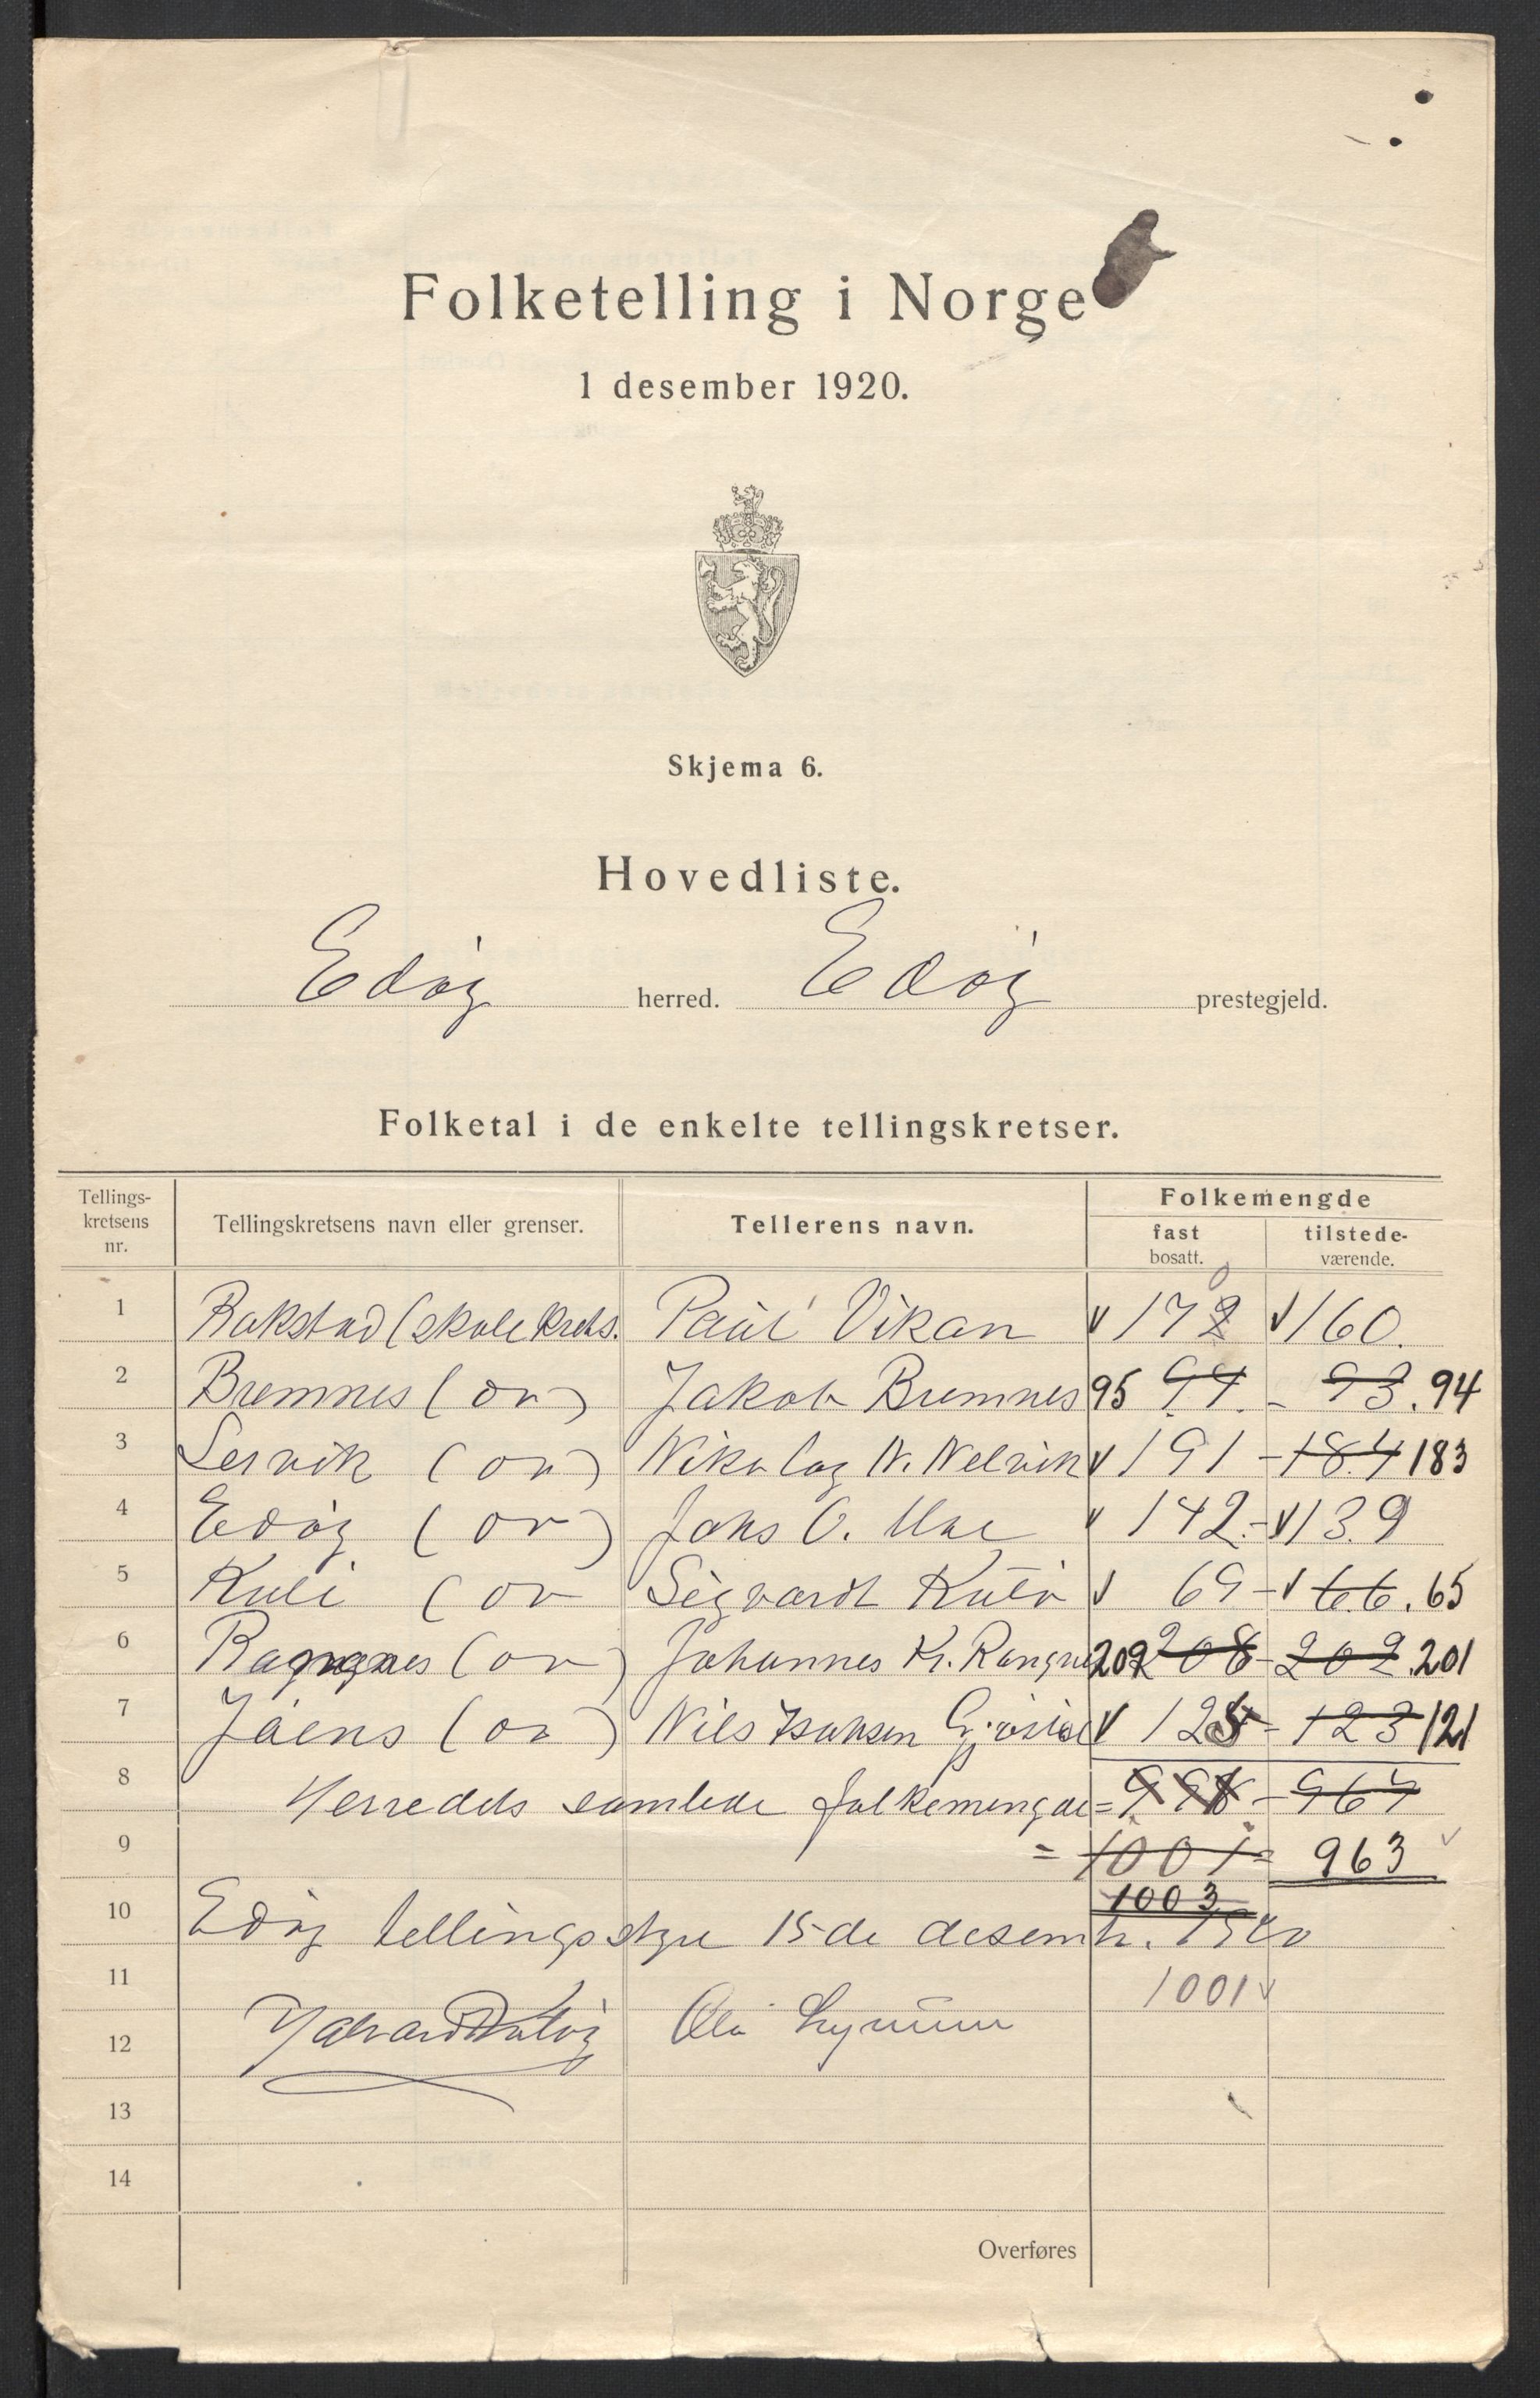 Folketelling i Norge
1 desember 1920.
Skjema 6.
Hovedliste.
Edöy herred. Edöy prestegjeld.
Folketal i de enkelte tellingskretser.
Tellings-
kretsens
nr.
Tellingskretsens navn eller grenser.
Tellerens navn.
Folkemengde
fast
bosatt.
tilstede-
værende.
1 Rokstad (skolekrets. Paul Vikan v 170 v 160.
2 Bremnes ( do ) Jakob Bremnes 95 94. - 93. 94
3 Lervik ( do ) Nikolay N. Nelvik v 191 - 184 183
4 Edöy ( do ) Johs O. v 142. - v 139
5 Kuli ( do Sigvardt Kulö v 69 - v 66. 65
6 Ragnnes ( do ) Johannes Kr. 209 208 - 202. 201
7 ( do ) Nils Isaksen v 125 - 123 121
8 Herredets samlede folkemengde = 998 - 967
9 = 1001 = 963 v
1003
10 Edöy tellingsstyre 15-de desembr. 1920
11 1001 v
12 Ola
13
14
Overføres